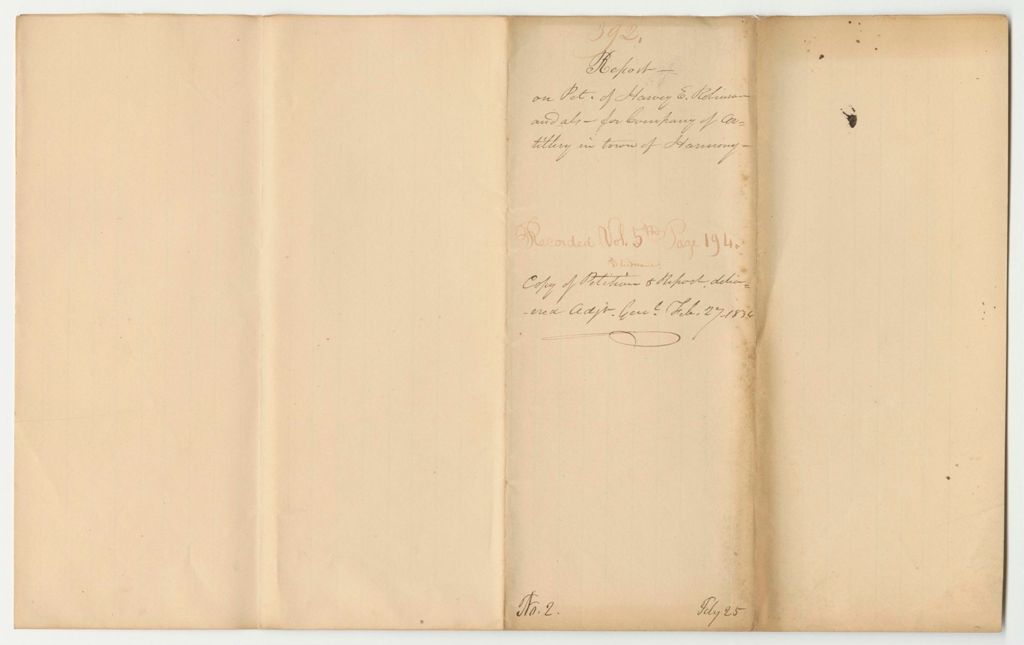 392.
Report —
on Pet. of Harvey E. Robinson
and als — for Company of Ar=
tillery in town of Harmony —
Recorded Vol. 5th Page 194.
Copy of Petition & Report, deliv=
-ered Adjt. Genl. Feb. 27. 1834
No. 2.
Feby 25